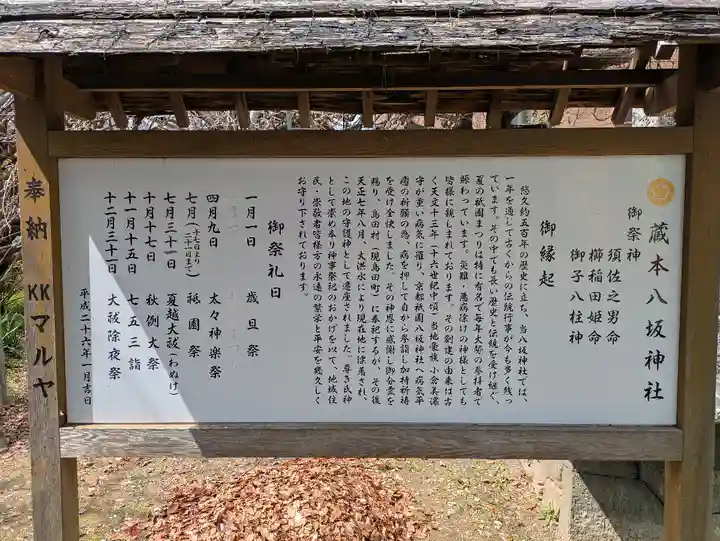 蔵本八坂神社
御祭神
須佐之男命
櫛稲田姫命
御子八柱神
御縁起
悠久約五百年の歴史に立ち、当八坂神社では、
一年を通して古くからの伝統行事が今も多く残っ
ています。その中でも長い歴史と伝統を受け継ぐ、
夏の祇園まつりは特に有名で毎年大勢の参拝者で
賑わっています。災難・悪病除けの神様としても
皆様に親しまれております。その創建の由来は古
く天文十三年(十六世紀中頃)当地豪族 小倉美濃
守が重い病気に罹り、京都祇園八坂神社へ病気平
癒の祈願の為、病を押して自から参詣し加持祈祷
を受け全快しました。その神恩に感謝し御分霊を
賜り、島田村(現島田町)に奉祀するが、その後
天正七年八月、大洪水により現在地に漂着され、
この地の守護神として遷座されました。尊き氏神
として崇め奉り神事祭祀のおかげを以て、地域住
民・崇敬者皆様方の永遠の繁栄と平安を幾久しく
お守り下されております。
御祭礼日
一月一日 歳旦祭
四月九日 太々神楽祭
七月(十七日より二十一日まで) 祇園祭
七月三十一日 夏越大祓(わぬけ)
十月十七日 秋例大祭
十一月十五日 七五三詣
十二月三十一日 大祓除夜祭
平成二十六年一月吉日
奉納 KKマルヤ